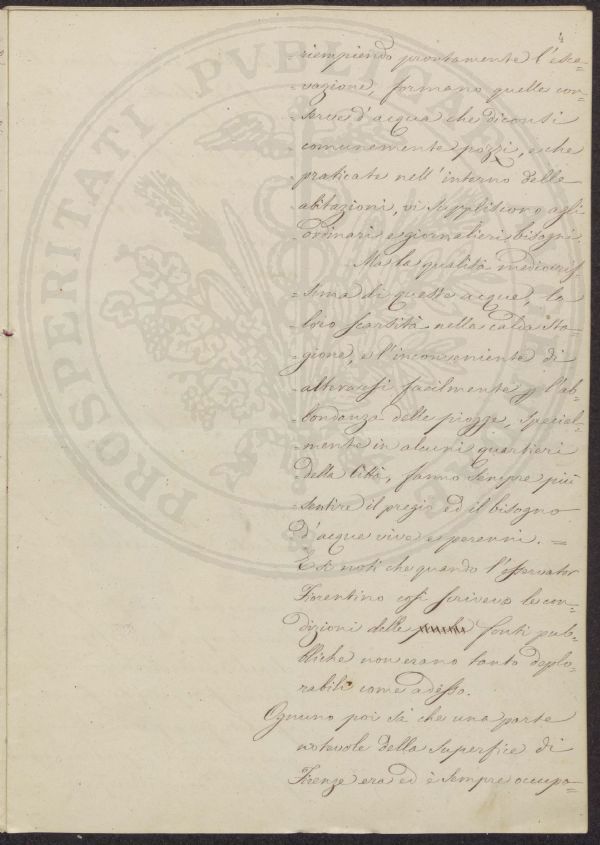 4
-riempiendo prontamente l'esca=
-vazione, formano quelle con=
-serve d'acqua che diconsi
-comunemente pozzi, e che
-praticate nell'interno delle
-abitazioni, vi suppliscono agli
-ordinari e giornalieri bisogni.
Ma la qualità mediocris=
-sima di queste acque, la
-loro scarsità nella calda sta=
-gione, e l'inconveniente di
-alterarsi facilmente p l'ab=
-bondanza delle piogge, special=
-mente in alcuni quartieri
-della Città, fanno sempre più
-sentire il pregio ed il bisogno
d'acque vive e perenni. =
E si noti che quando l'osservator
Fiorentino così scriveva le con=
dizioni delle fonti pub=
bliche non erano tanto deplo=
rabili come adesso.
Ognuno poi sà che una parte
notevole della superfice di
Firenze era ed è sempre occupa=
PROSPERITATI PVBLICAE